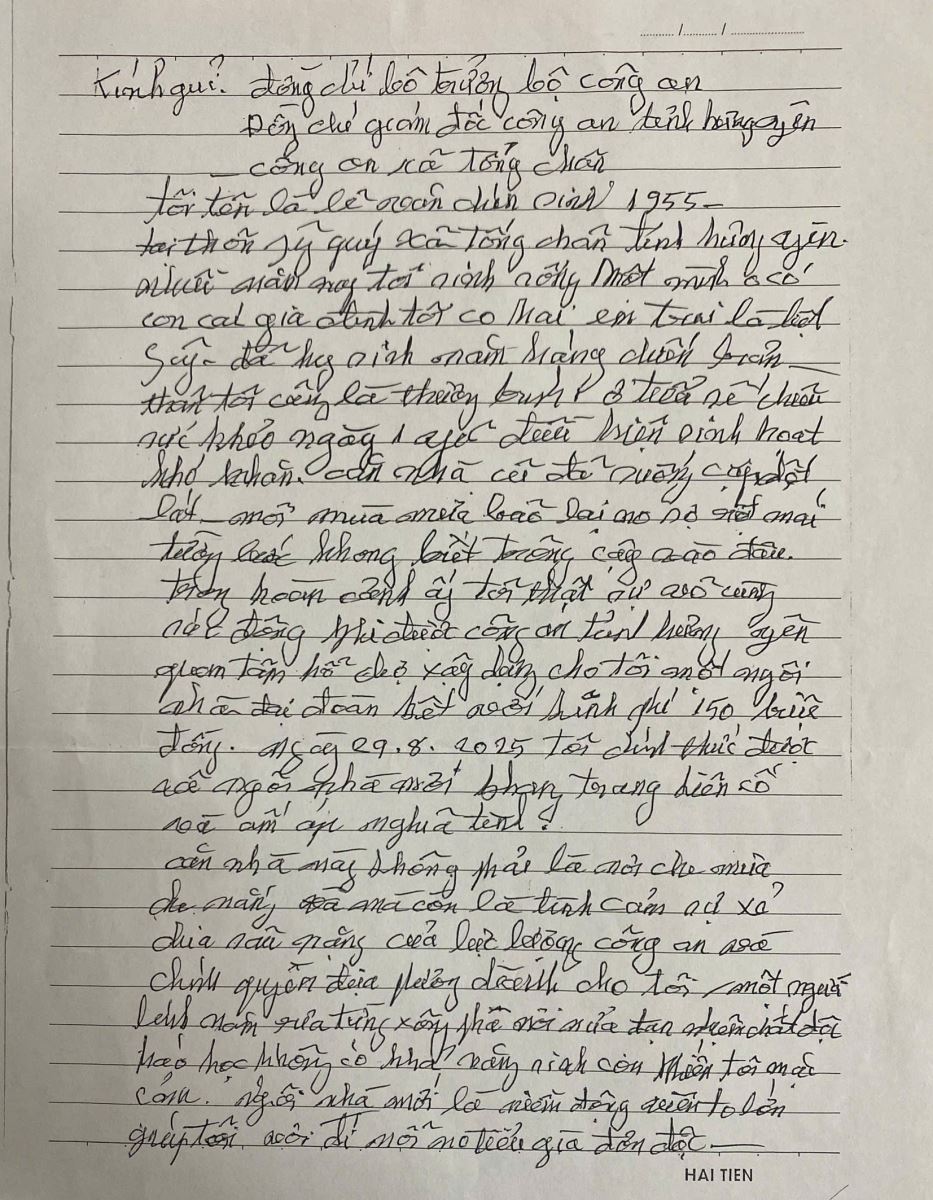 Kính gửi: đồng chí bộ trưởng bộ công an
Đồng chí giám đốc công an tỉnh hưng yên
công an xã Tống chân
tôi tên là lê xuân sinh 1955-
thôn sỹ quý xã tống chân tỉnh hưng yên.
nhiều năm nay tôi sinh sống một mình có
con cái già đình tôi có hai em trai là liệt
sỹ- đã hy sinh năm kháng chiến bản
thân tôi cũng là thương binh ở tuổi xế chiều
sức khỏe ngày 1 yếu điều kiện sinh hoạt
khó khăn. căn nhà cũ đã xuống cấp dột
lát mỗi mùa mưa bão lại lo sợ mái
tường không biết trông cậy vào đâu.
trong hoàn cảnh ấy tôi thật sự vô cùng
xúc động khi được công an tỉnh hưng yên
quan tâm hỗ chợ xây dựng cho tôi một ngôi
nhà đại đoàn kết với kinh phí 150 triệu
đồng. ngày 29.8.2025 tôi chính thức được
về ngôi nhà mới khang trang kiên cố
và ấm áp nghĩa tình!
căn nhà này không phải là nơi che mưa
che nắng mà còn là tình cảm sự xẻ
chia sâu nặng của lực lượng công an và
chính quyền địa phương dành cho tôi một người
lính năm xưa từng xông pha nơi lửa đạn chất độc
hóa học không có khả năng sinh con khiến tôi mặc
cảm. Ngôi nhà mới là niềm động viên to lớn
giúp tôi vơi đi nỗi lo tuổi già đơn độc
HAI TIEN